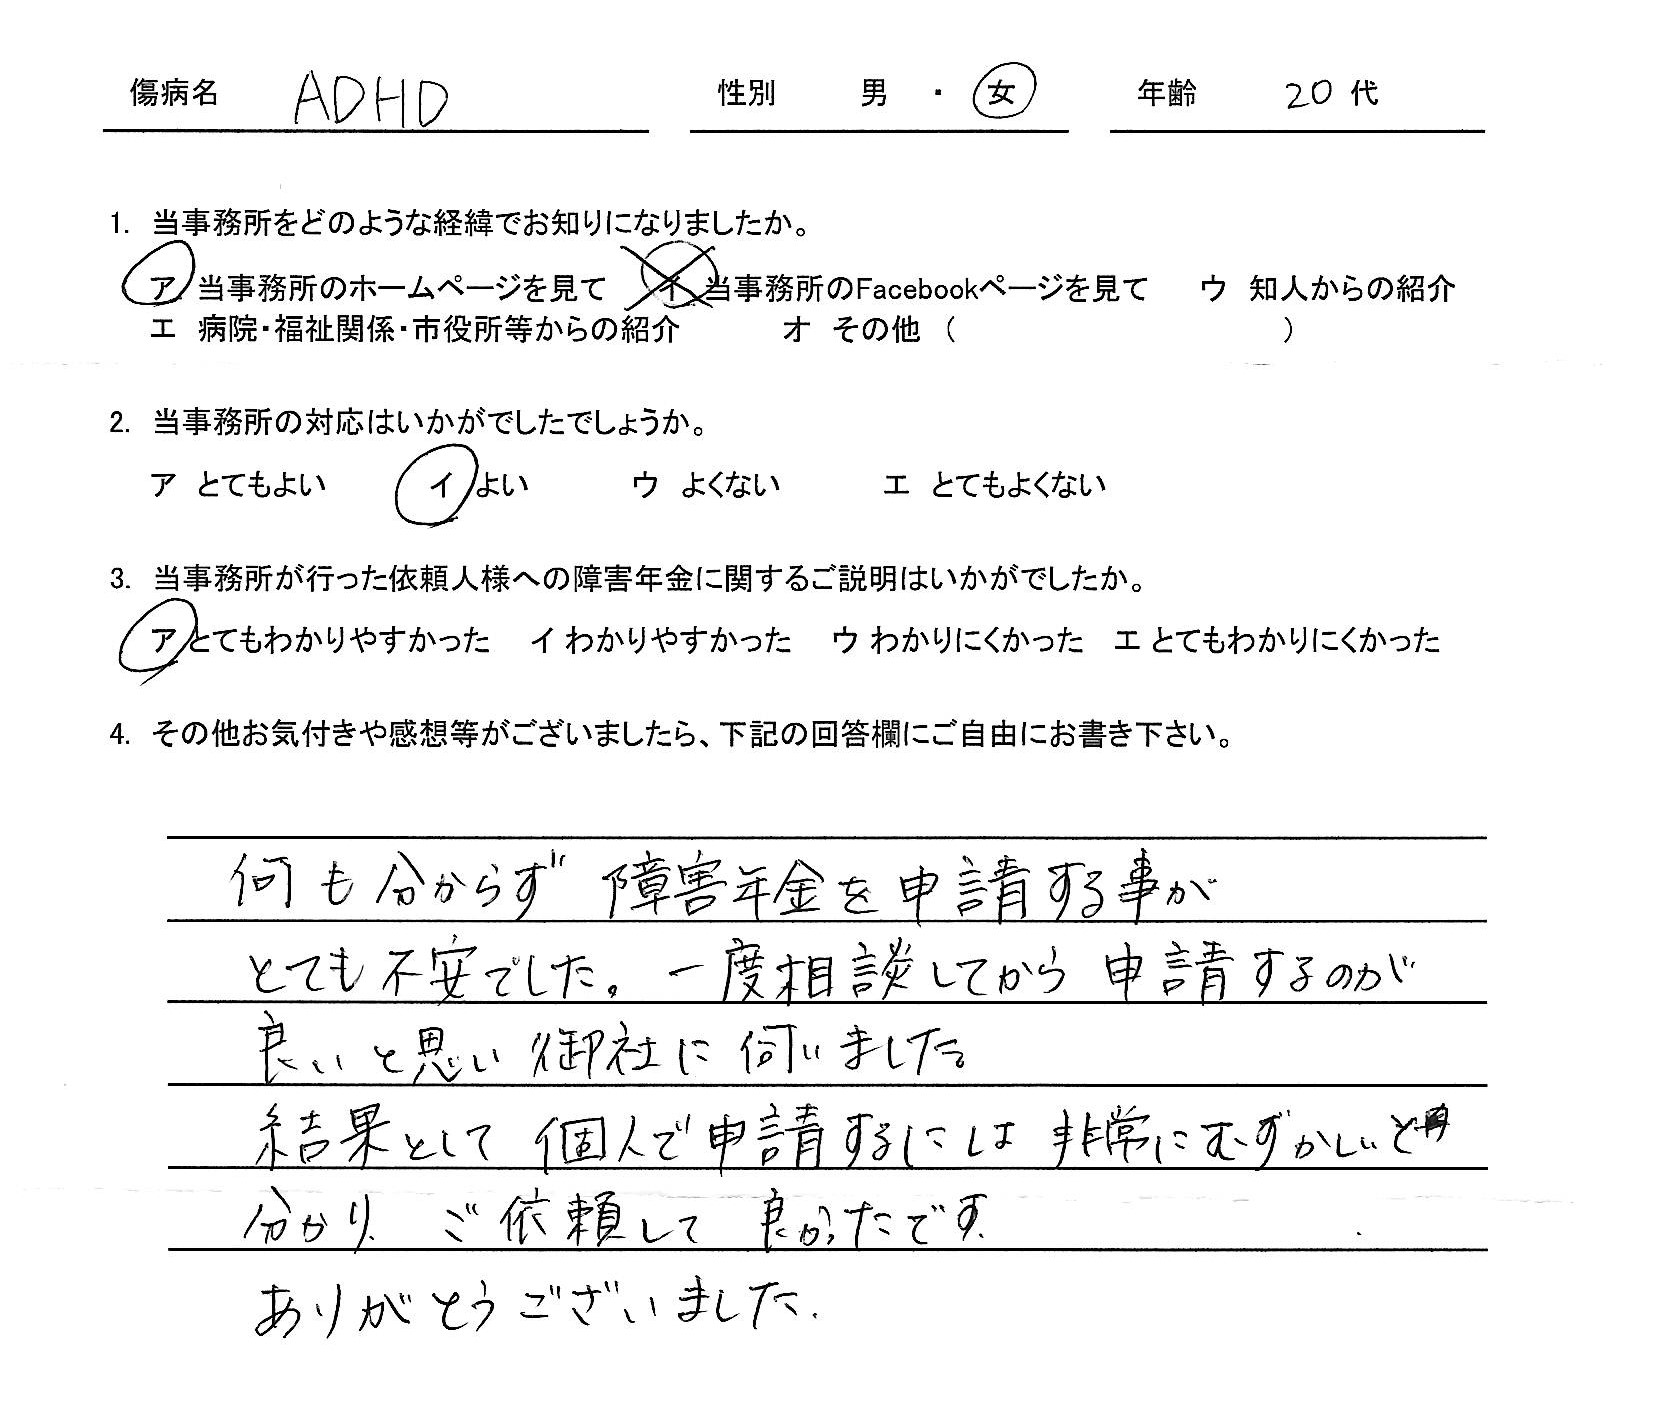 傷病名 ADHD 性別 男 ・ 女 年齢 20 代
1. 当事務所をどのような経緯でお知りになりましたか。
ア 当事務所のホームページを見て イ 当事務所のFacebookページを見て ウ 知人からの紹介
エ 病院・福祉関係・市役所等からの紹介 オ その他 ( )
2. 当事務所の対応はいかがでしたでしょうか。
ア とてもよい イ よい ウ よくない エ とてもよくない
3. 当事務所が行った依頼人様への障害年金に関するご説明はいかがでしたか。
ア とてもわかりやすかった イ わかりやすかった ウ わかりにくかった エ とてもわかりにくかった
4. その他お気付きや感想等がございましたら、下記の回答欄にご自由にお書き下さい。
何も分からず 障害年金を申請する事が
とても不安でした。一度相談してから申請するのが
良いと思い御社に伺いました。
結果として個人で申請するにしは非常にむずかしいと
分かり、ご依頼して良かったです。
ありがとうございました。